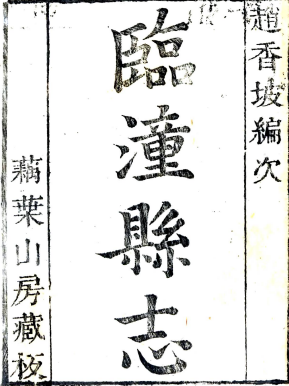 趙香坡編次
臨潼縣志
藕葉山房藏板